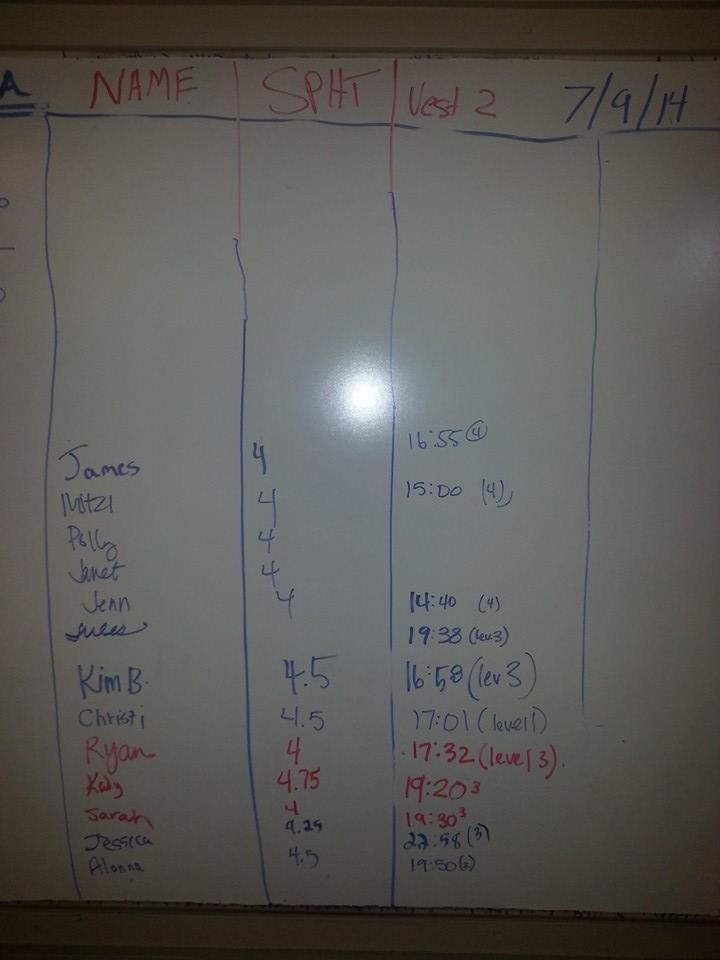 A NAME SPHT Vest 2 7/9/14
James 4 16:55 (4)
Mitzi 4 15:00 (4)
Polly 4
Janet 4
Jenn 4 14:40 (4)
19:38 (lev 3)
Kim B. 4.5 16:58 (lev 3)
Christi 4.5 17:01 (level 1)
Ryan 4 17:32 (level 3).
Katy 4.75 19:20 3
Sarah 4 19:30 3
Jessica 4.25 22:58 (3)
Alonna 4.5 19:50